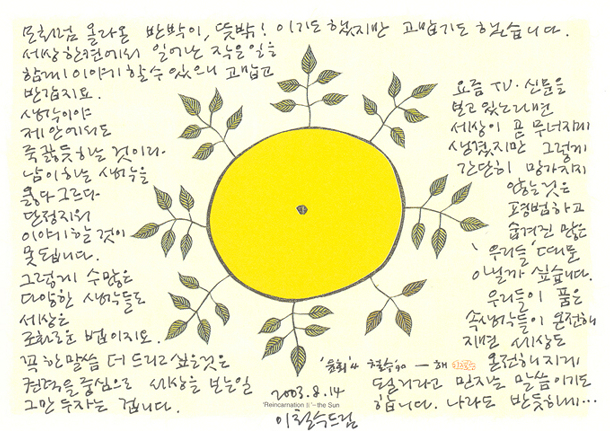 모처럼 올라온 반박이, 뜻밖! 이기도 했지만 고맙기도 했습니다.
세상 한켠에서 일어난 작은 일을
함께 이야기 할 수 있으니 고맙고
반갑지요.
생각이야
제 안에서도
죽 끓듯하는 것이라
남이 하는 생각을
옳다 그르다
단정지워
이야기 할 것이
못 됩니다.
그렇게 수많은
다양한 생각들로
세상은
조화로운 법이지요.
꼭 한말씀 더 드리고 싶은 것은
권력을 중심으로 세상을 보는 일
그만 두자는 겁니다.
요즘 TV·신문을
보고 있노라면
세상이 곧 무너지게
생겼지만 그렇게
간단히 망가지지
않는 것은
평범하고
숨겨진 많은
'우리들' 때문
아닐까 싶습니다.
우리들이 품은
속생각들이 온전해
지면 세상도
온전해지게
되리라고 믿자는 말씀이기도
합니다. 나라도 반듯하게…
'윤회' 4 철수 90 — 해
2003. 8. 14
'Reincarnation Ⅱ'—the Sun
이철수 드림